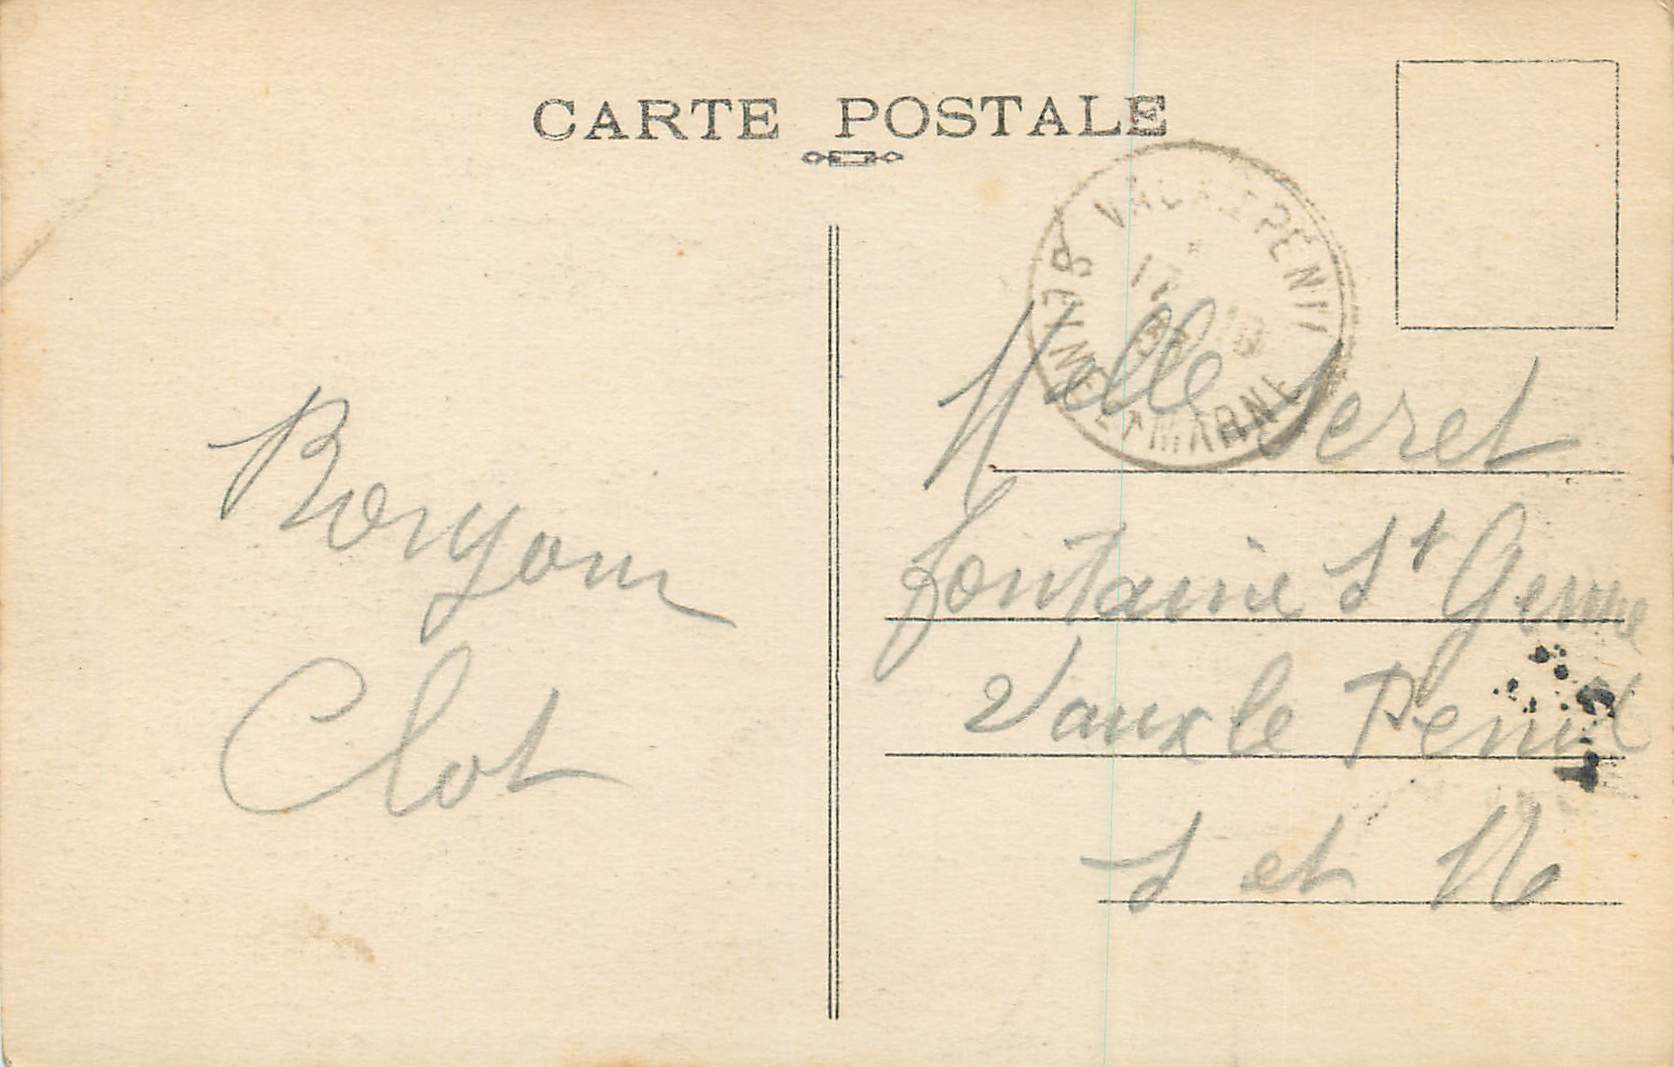 CARTE POSTALE
VAUX LE PÉNIL
SEINE ET MARNE
Bonjour
Clot
Melle Seret
fontaine St Germe
Vaux le Penil
S et M